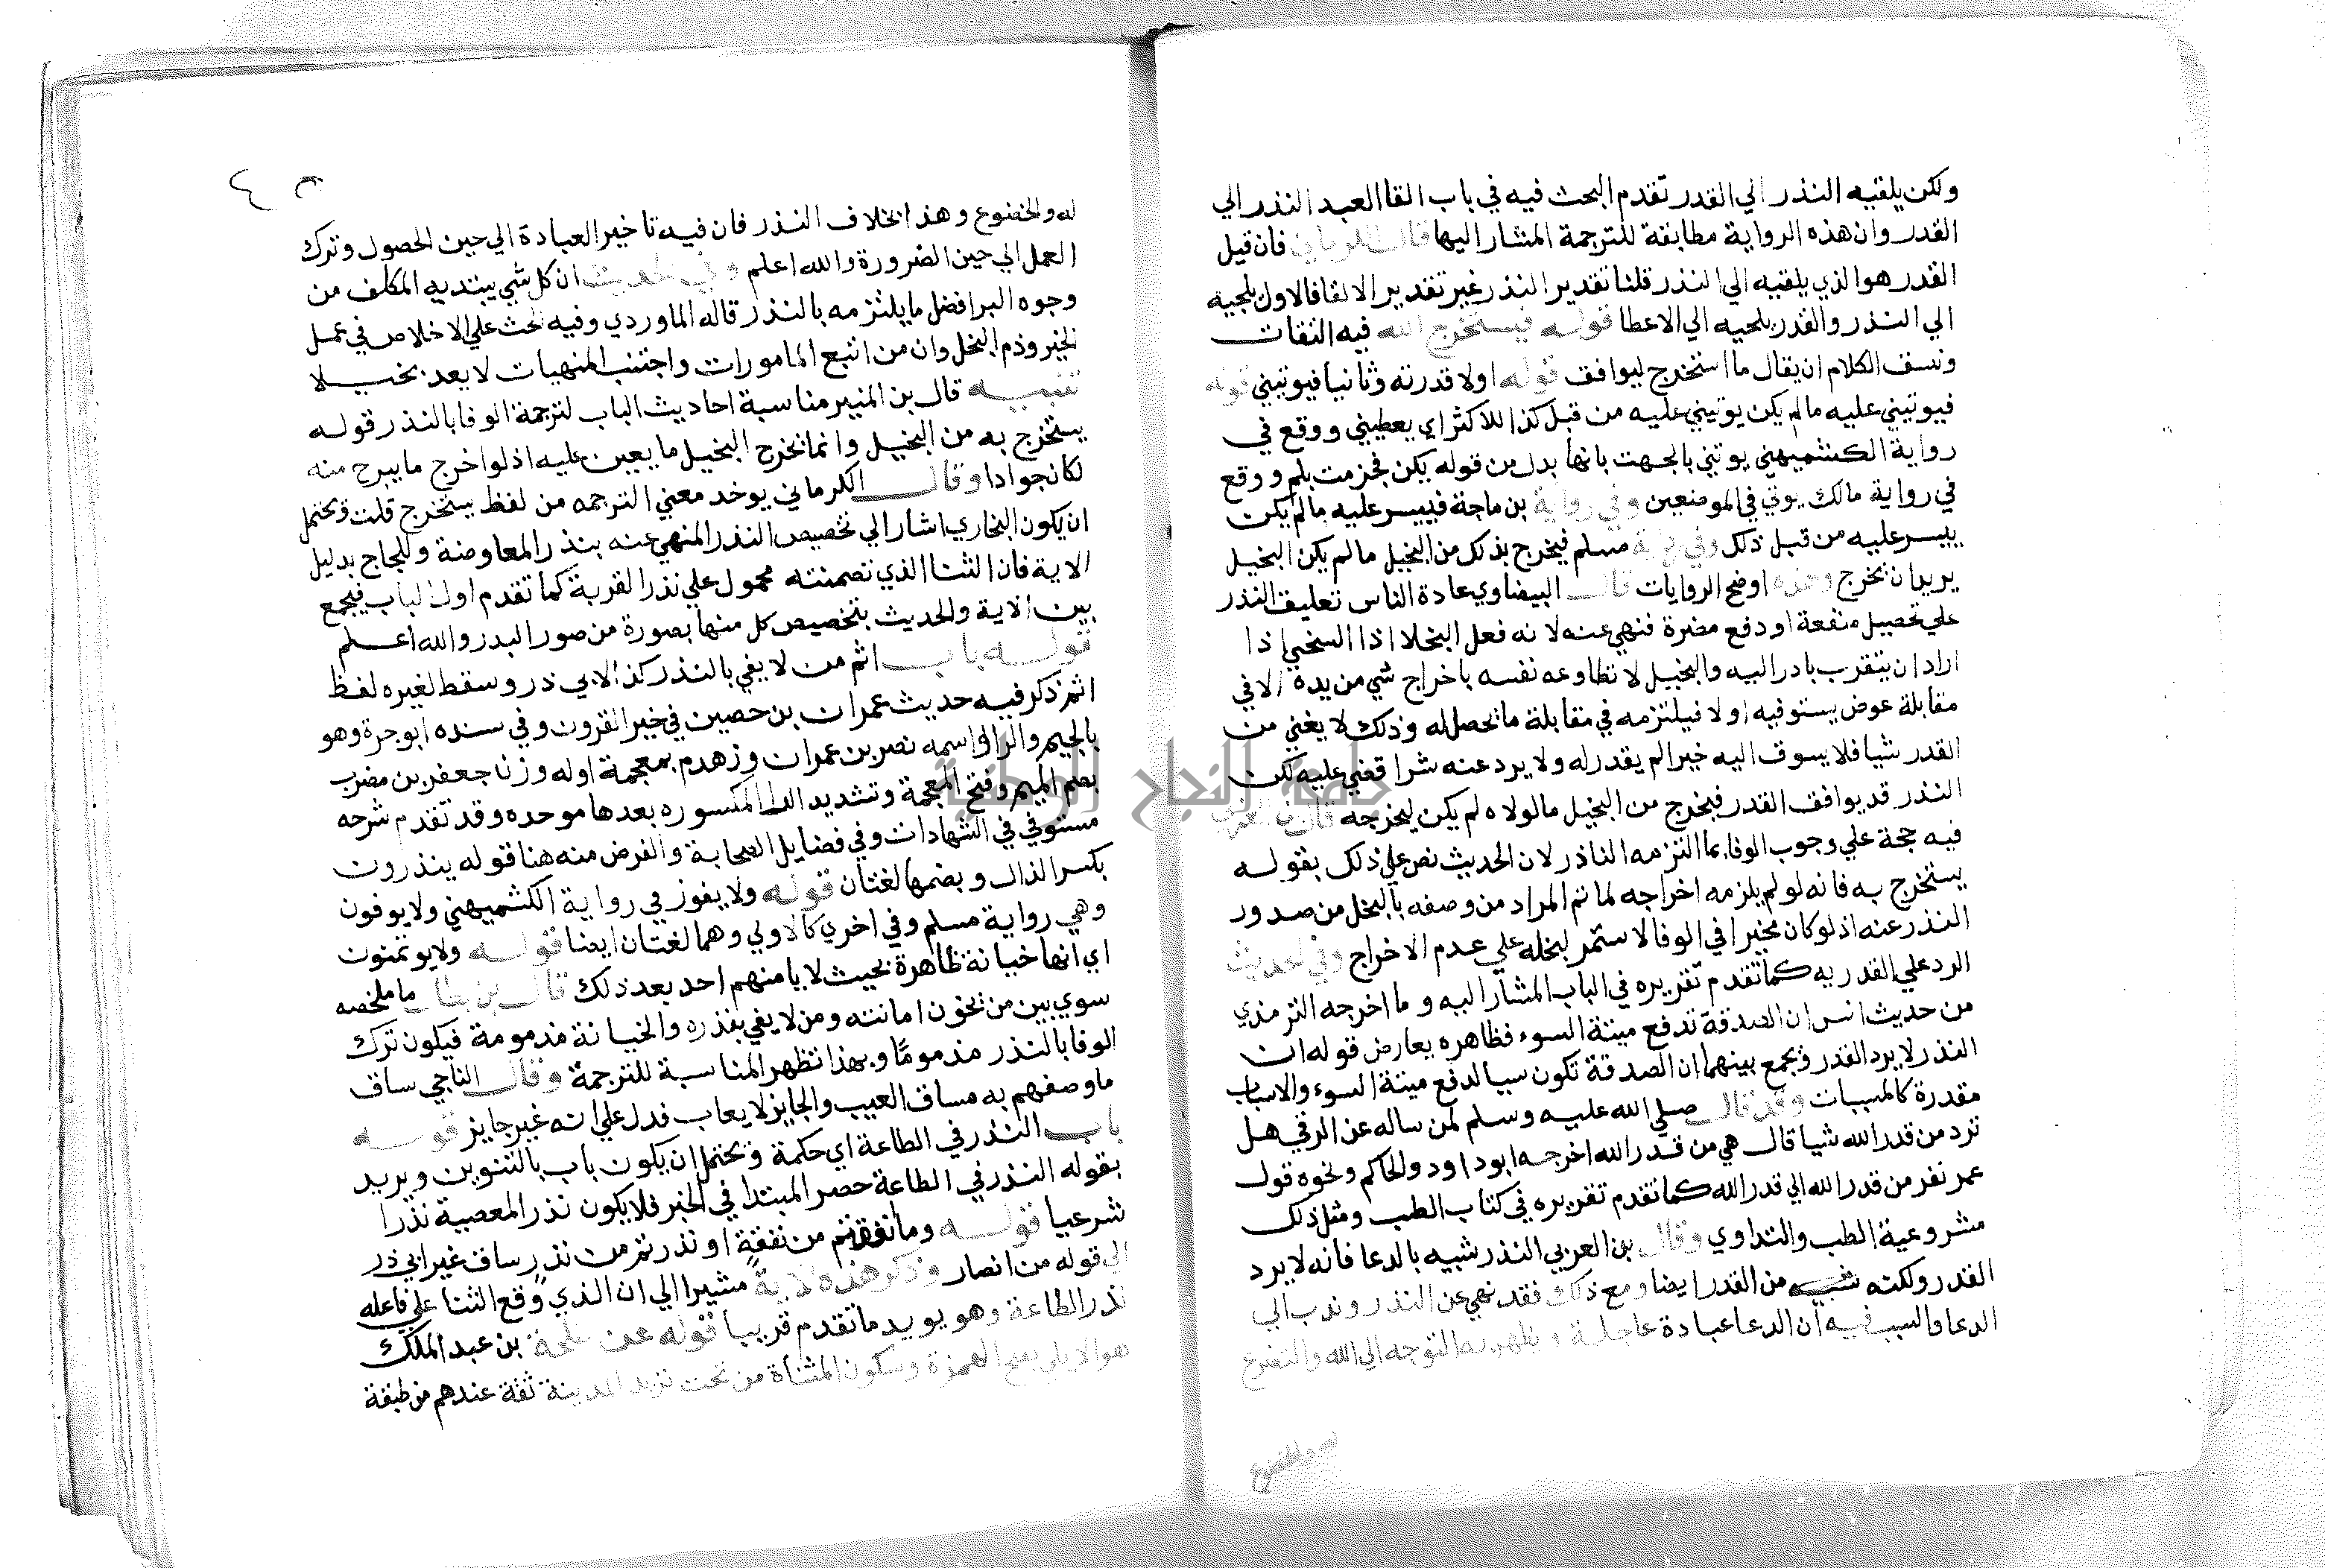 ولكن يلقيه النذر الي القدر تقدم البحث فيه في باب القا العبد النذر الي
القدر وان هذه الرواية مطابقة للترجمة المشار اليها قال الكرماني فان قيل
القدر هو الذي يلقيه الي النذر قلنا تقدير النذر غير تقدير الالقا فالاول يلجيه
الي النذر والقدر يلجيه الي الاعطا قوله فيستخرج الله فيه التفات
ونسق الكلام ان يقال ما استخرج ليوافق قوله اولا قدرته وثانيا فيوتيني قوله
فيوتيني عليه ما لم يكن يوتيني عليه من قبل كذا للاكثر اي يعطيني ووقع في
رواية الكشميهني يوتني بالجهت بانها بدل من قوله يكن فجزمت بلم ووقع
في رواية مالك يوتي في الموضعين وفي رواية بن ماجة فييسر عليه ما لم يكن
ييسر عليه من قبل ذلك وفي رواية مسلم فيخرج بذلك من البخيل ما لم يكن البخيل
يريد ان يخرج وهذه اوضح الروايات قال البيضاوي عادة الناس تعليق النذر
علي تحصيل منفعة او دفع مضرة فنهي عنه لانه فعل البخلا اذا السخي اذا
اراد ان يتقرب بادر اليه والبخيل لا تطاوعه نفسه باخراج شي من يده الا في
مقابلة عوض يستوفيه اولا فيلتزمه في مقابلة ما تحصل له وذلك لا يغني من
القدر شيا فلا يسوق اليه خيرا لم يقدر له ولا يرد عنه شرا قضي عليه لكن
النذر قد يوافق القدر فيخرج من البخيل ما لولاه لم يكن ليخرجه قال بن العربي
فيه حجة علي وجوب الوفا بما التزمه الناذر لان الحديث نص علي ذلك بقوله
يستخرج به فانه لو لم يلزمه اخراجه لما تم المراد من وصفه بالبخل من صدور
النذر عنه اذ لو كان مخيرا في الوفا لاستمر لبخله علي عدم الاخراج وفي الحديث
الرد علي القدريه كما تقدم تقريره في الباب المشار اليه وما اخرجه الترمذي
من حديث انس ان الصدقة تدفع ميتة السوء فظاهره يعارض قوله ان
النذر لا يرد القدر ويجمع بينهما ان الصدقة تكون سببا لدفع ميتة السوء والاسباب
مقدرة كالمسببات وقد قال صلي الله عليه وسلم لمن ساله عن الرقي هل
ترد من قدر الله شيا قال هي من قدر الله اخرجه ابوداود والحاكم ونحوه قول
عمر نفر من قدر الله الي قدر الله كما تقدم تقريره في كتاب الطب ومثل ذلك
مشروعية الطب والتداوي وقال بن العربي النذر شبيه بالدعا فانه لا يرد
القدر ولكنه شبيه من القدر ايضا ومع ذلك فقد نهي عن النذر وندب الي
الدعا والسبب فيه ان الدعا عبادة عاجلة ويظهر به التوجه الي الله والتضرع
له والخضوع
له والخضوع وهذا بخلاف النذر فان فيه تاخير العبادة الي حين الحصول وترك
العمل الي حين الضرورة والله اعلم وفي الحديث ان كل شي يبتديه المكلف من
وجوه البر افضل ما يلتزمه بالنذر قاله الماوردي وفيه الحث علي الاخلاص في عمل
الخير وذم البخل وان من اتبع المامورات واجتنب المنهيات لا يعد بخيلا
تنبيه قال بن المنير مناسبة احاديث الباب لترجمة الوفا بالنذر قوله
يستخرج به من البخيل وانما يخرج البخيل ما يعين عليه اذ لو اخرج ما يبرح منه
لكان جوادا وقال الكرماني يوخد معني الترجمه من لفظ يستخرج قلت ويحتمل
ان يكون البخاري اشار الي تخصيص النذر المنهي عنه بنذر المعاوضة واللجاج بدليل
الاية فان الثنا الذي تضمنته محمول علي نذر القربة كما تقدم اول الباب فيجمع
بين الاية والحديث بتخصيص كل منها بصورة من صور البدر والله اعلم
قوله باب اثم من لا يفي بالنذر كذا لابي ذر وسقط لغيره لفظ
اثم ذكر فيه حديث عمران بن حصين في خير القرون وفي سنده ابوجرة وهو
بالجيم والرا واسمه نصر بن عمران وزهدم بمعجمة اوله وزنا جعفر بن مضرب
بضم الميم وفتح المعجمة وتشديد الرا المكسوره بعدها موحده وقد تقدم شرحه
مستوفي في الشهادات وفي فضايل الصحابة والغرض منه هنا قوله ينذرون
بكسر الذال وبضمها لغتان قوله ولا يفوز في رواية الكشميهني ولا يوفون
وهي رواية مسلم وفي اخري كالاولي وهما لغتان ايضا قوله ولا يوتمنون
اي انها خيانة ظاهرة بحيث لا يامنهم احد بعد ذلك قال بن بطال ما ملخصه
سوي بين من يخون امانته ومن لا يفي بنذره والخيانة مذمومة فيكون ترك
الوفا بالنذر مذموما وبهذا تظهر المناسبة للترجمة وقال الناجي ساق
ما وصفهم به مساق العيب والجايز لا يعاب فدل علي انه غير جايز قوله
باب النذر في الطاعة اي حكمة ويحتمل ان يكون باب بالتنوين ويريد
بقوله النذر في الطاعة حصر المبتدا في الخبر فلا يكون نذر المعصية نذرا
شرعيا قوله وما نفقتم من نفقة او نذرتم من نذر ساق غير ابي ذر
الي قوله من انصار وذكر هذه الاية مشيرا الي ان الذي وقع الثنا علي فاعله
نذر الطاعة وهو يويد ما تقدم قريبا قوله عن طلحة بن عبد الملك
هو الايلي بفتح الهمزة وسكون المثناة من تحت نزيل المدينة ثقة عندهم من طبقة
جامعة النجاح الوطنية